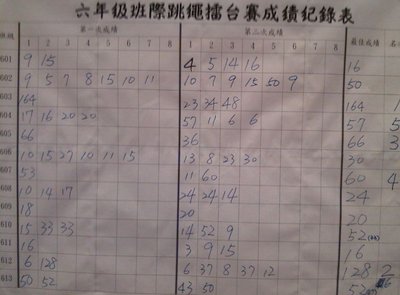 六年级班際跳繩擂台賽成績紀錄表
班級 第一次成績 第二次成績 最佳成績 名
1 2 3 4 5 6 7 8 1 2 3 4 5 6 7 8
601 9 15 4 5 14 16 16
602 9 5 7 8 15 10 11 10 7 9 15 50 9 50
603 164 23 34 48 164 1
604 17 16 20 20 57 11 6 6 57 5
605 66 36 66 3
606 10 15 27 10 11 15 13 8 23 30 30
607 53 11 60 60 4
608 10 14 17 24 24 14 24
609 18 20 20
610 15 33 33 14 52 9 52
611 16 3 9 15 16
612 6 128 6 37 8 37 12 128 2
613 50 52 43 50 52